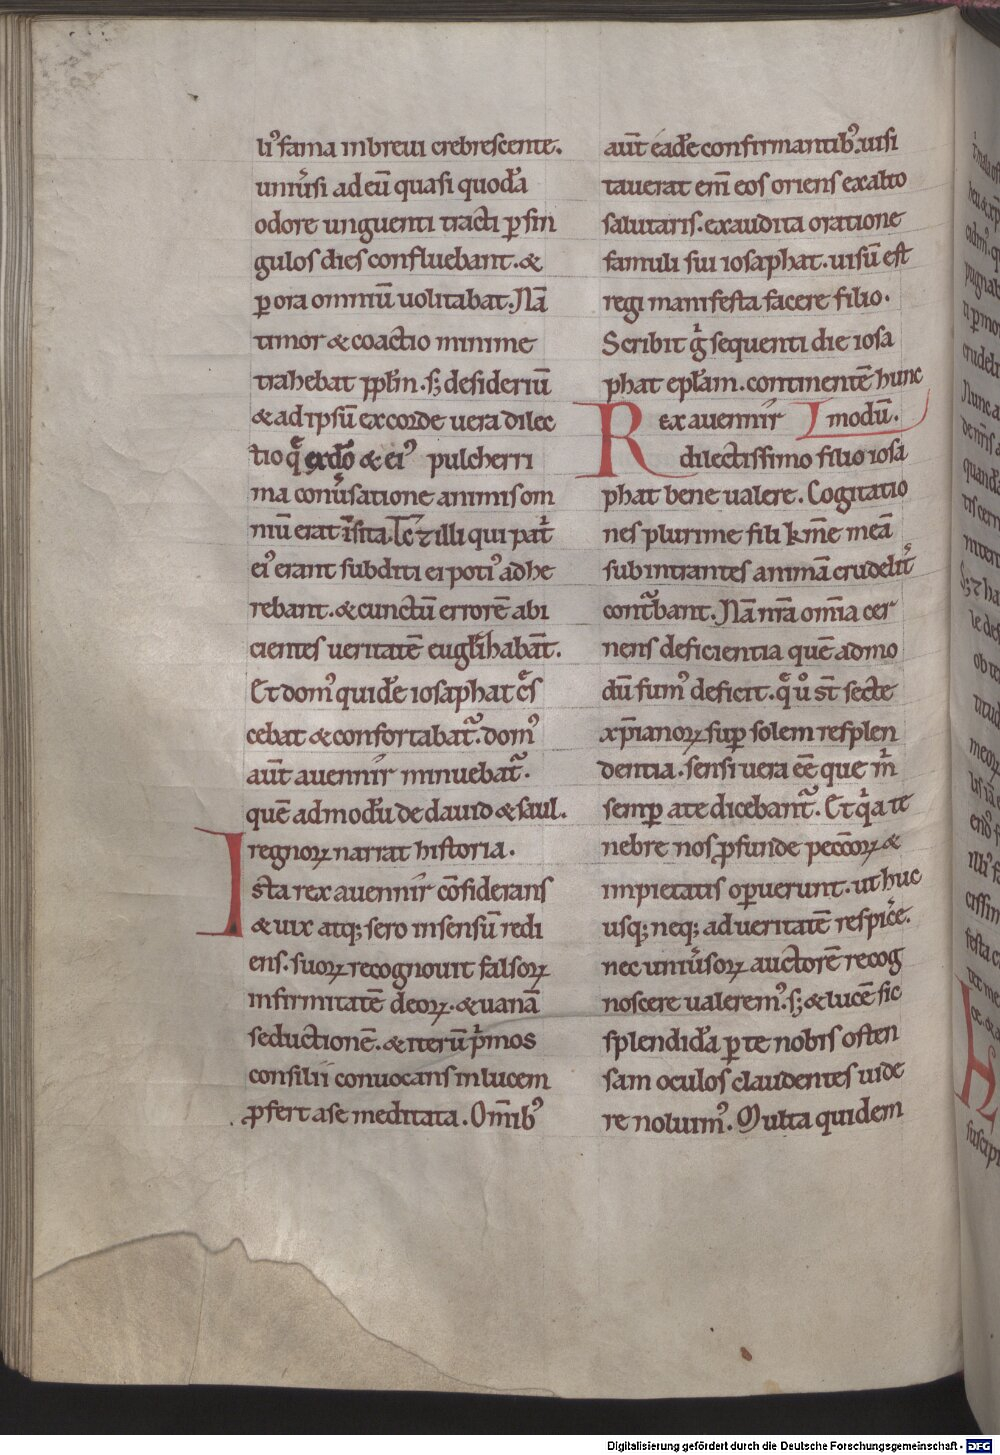 li᾽ fama in breui crebrescente.
uniũsi ad eũ quasi quodã
odore unguenti tracti ꝑ sin
gulos dies confluebant. &
ꝑ ora omniũ uolitabat. Nã
timor & coactio minime
trahebat pplm̃. sꝫ desideriũ
& ad ipsũ ex corde uera dilec
tio q̃ &ei᾽ pulcherri
ma conũsatione animis om
niũ erat ĩsita. &illi qui pat̃
ei᾽ erant subditi ei poti᾽ adhe
rebant. & cunctũ errorẽ abi
cientes ueritatẽ euglĩi habãt.
Et dom᾽ quidẽ iosaphat c̃s
cebat & confortabat᷑. dom᾽
aũt auennir minuebat᷑.
quẽ admodũ de dauid & saul.
regnoꝝ narrat historia.
Ista rex auennir cõsiderans
& uix atqꝫ sero in sensũ redi
ens. suoꝝ recognouit falsoꝝ
infirmitatẽ deoꝝ. & uanã
seductionẽ. & iterũ p̃mos
consilii conuocans in lucem
ꝓfert a se meditata. Om̃ib᾽
aũt eãdẽ confirmantib᾽. uisi
tauerat em̃ eos oriens ex alto
salutaris. exaudita oratione
famuli sui iosaphat. uisũ est
regi manifesta facere filio.
Scribit g̃ sequenti die iosa
phat epl̃am. continentẽ hunc
modũ.
Rex auennir
dilectissimo filio iosa
phat bene ualere. Cogitatio
nes plurime fili km̃e meã
subintrantes animã crudelit̃
cont᷑bant. Nã nr̃a om̃ia cer
nens deficientia quẽ admo
dũ fum᾽ deficit. q̃ ů st̃ secte
xp̃ianoꝝ suꝑ solem resplen
dentia. sensi uera eẽ que m̃
semꝑ a te dicebant᷑. Et q̃a te
nebre nos ꝓfunde pecc̃oꝝ &
impietatis oꝑuerunt. ut huc
usqꝫ neqꝫ ad ueritatẽ respic̃e.
nec uniũsoꝝ auctorẽ recog
noscere ualerem᾽. sꝫ & lucẽ sic
splendidã ꝑ te nobis osten
sam oculos claudentes uide
re noluim᾽. Multa quidem
Digitalisierung gefördert durch die Deutsche Forschungsgemeinschaft - DFG